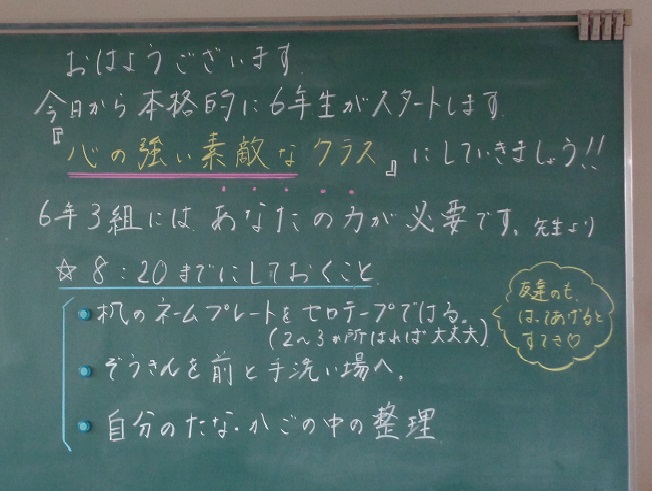 おはようございます。
今日から本格的に6年生がスタートします。
『心の強い素敵なクラス』にしていきましょう!!
6年3組にはあなたの力が必要です。先生より
☆8:20までにしておくこと
・机のネームプレートをセロテープではる。
(2〜3カ所はれば大丈夫)
友達のも、
はってあげると
すてき♡
・ぞうきんを前と手洗い場へ。
・自分のたな・かごの中の整理